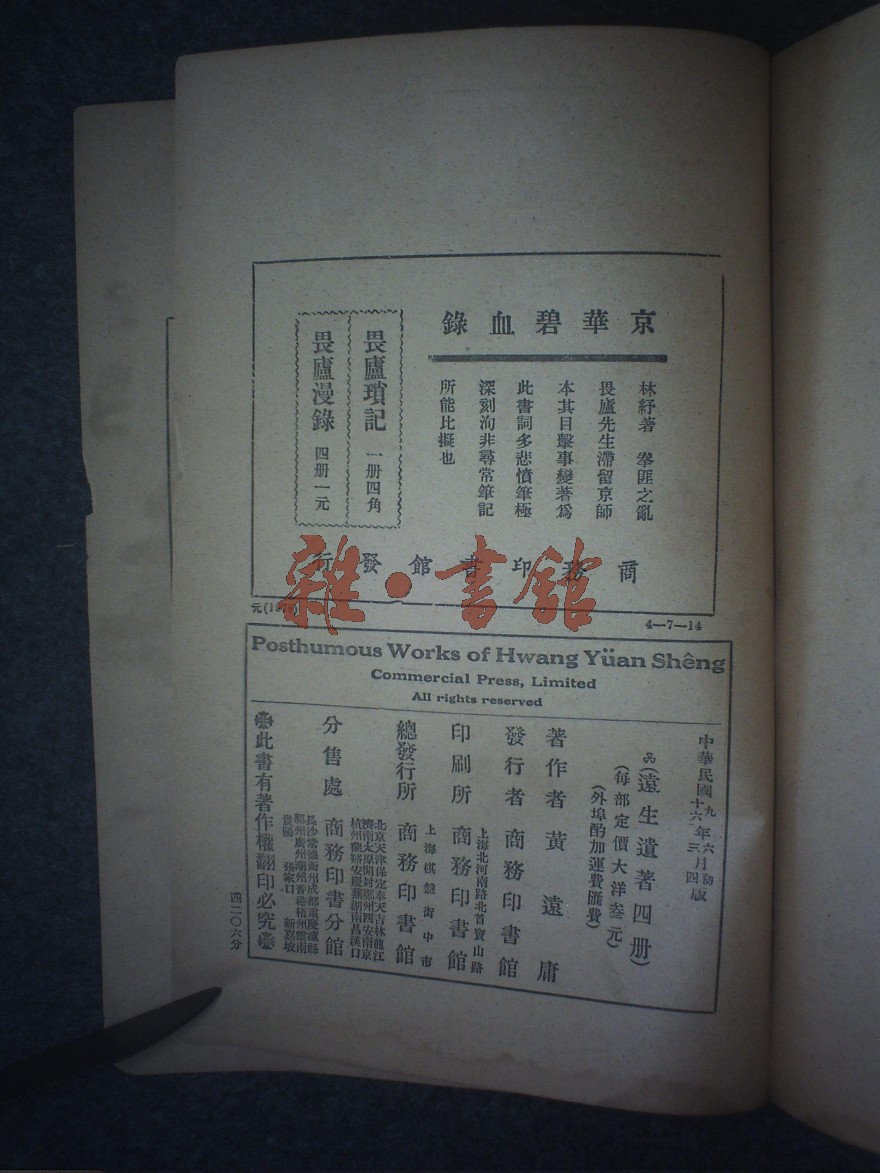 京華碧血錄
林紓著 拳匪之亂
畏廬先生滯留京師
本其目擊事變著爲
此書詞多悲憤筆極
深刻洵非尋常筆記
所能比擬也
畏廬瑣記 一册四角
畏廬漫錄 四册一元
商務印書館發行
雜·書館
元(1078)
4—7—14
Posthumous Works of Hwang Yüan Shêng
Commercial Press, Limited
All rights reserved
中華民國九年六月初版
十六年三月四版
(遠生遺著四册)
(每部定價大洋叁元)
(外埠酌加運費匯費)
著作者 黃遠庸
發行者 商務印書館
上海北河南路北首寶山路
印刷所 商務印書館
上海棋盤街中市
總發行所 商務印書館
北京天津保定奉天吉林龍江
濟南太原開封鄭州西安南京
杭州蘭谿安慶蕪湖南昌漢口
分售處 商務印書分館
長沙常德衡州成都重慶瀘縣
福州廣州潮州香港梧州雲南
貴陽 張家口 新嘉坡
此書有著作權翻印必究
四二〇六分